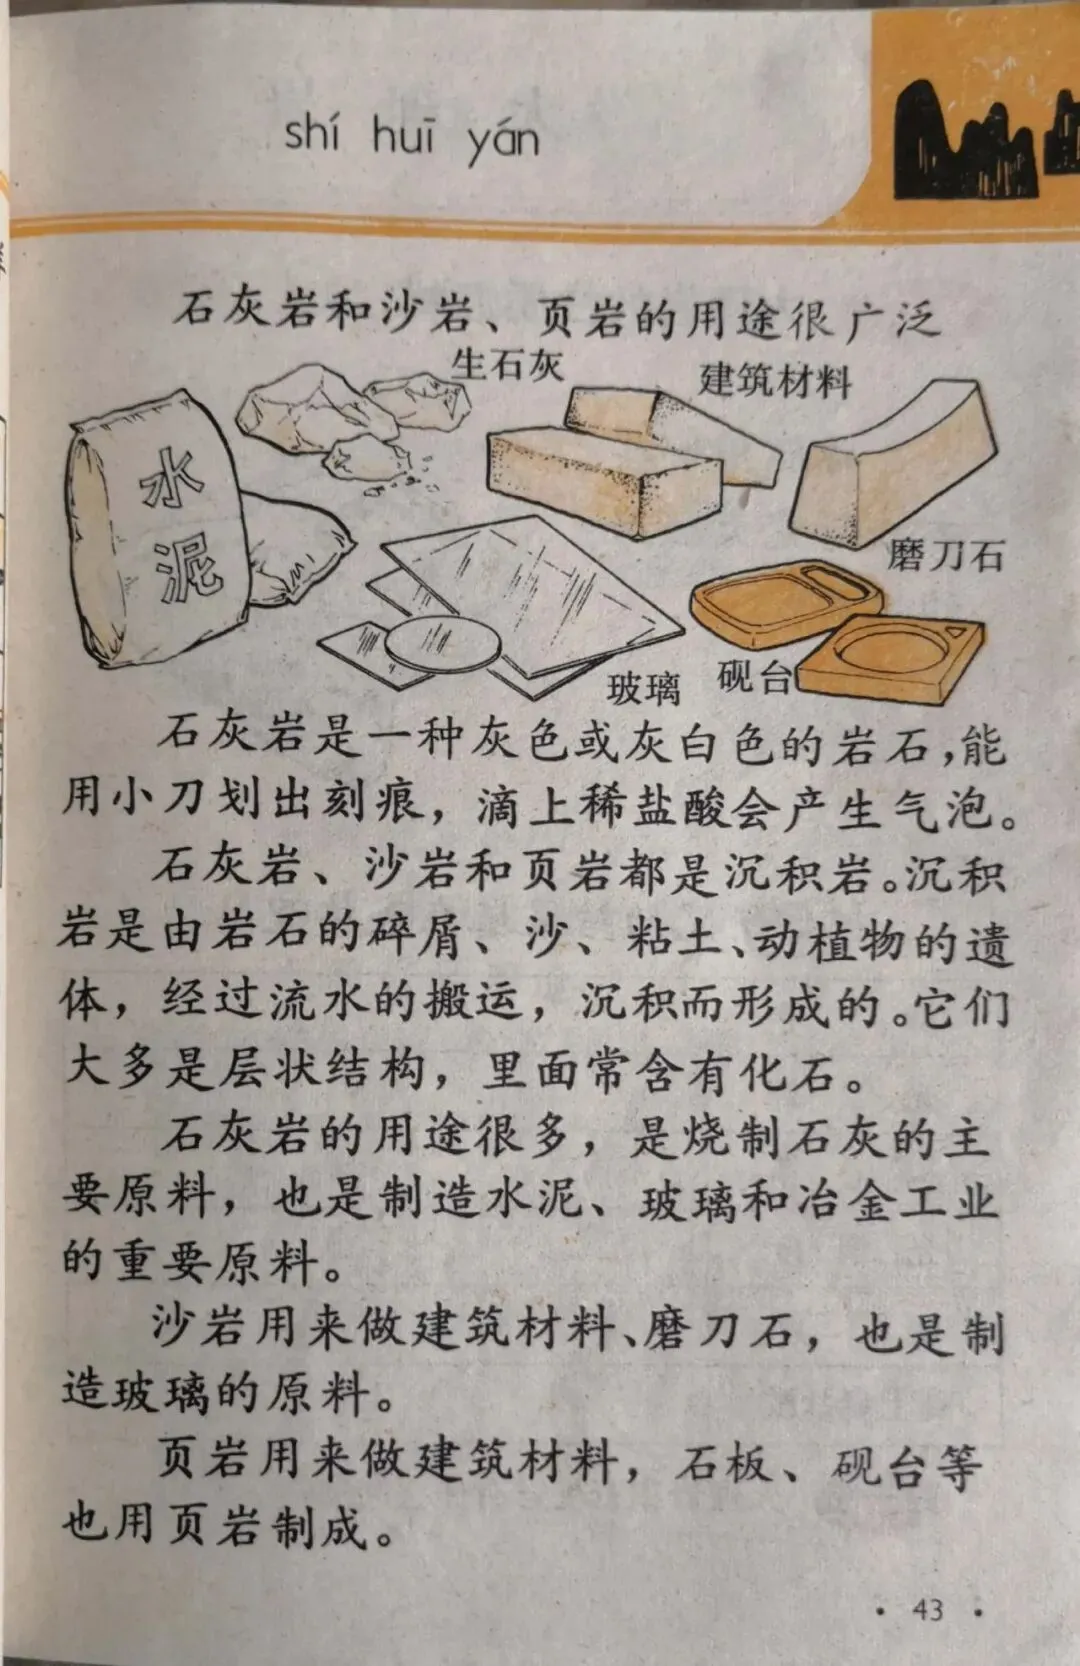 shí huī yán
石灰岩和沙岩、页岩的用途很广泛
生石灰
建筑材料
水泥
磨刀石
玻璃
砚台
石灰岩是一种灰色或灰白色的岩石,能
用小刀划出刻痕，滴上稀盐酸会产生气泡。
石灰岩、沙岩和页岩都是沉积岩。沉积
岩是由岩石的碎屑、沙、粘土、动植物的遗
体，经过流水的搬运，沉积而形成的。它们
大多是层状结构，里面常含有化石。
石灰岩的用途很多，是烧制石灰的主
要原料，也是制造水泥、玻璃和冶金工业
的重要原料。
沙岩用来做建筑材料、磨刀石，也是制
造玻璃的原料。
页岩用来做建筑材料，石板、砚台等
也用页岩制成。
· 43 ·